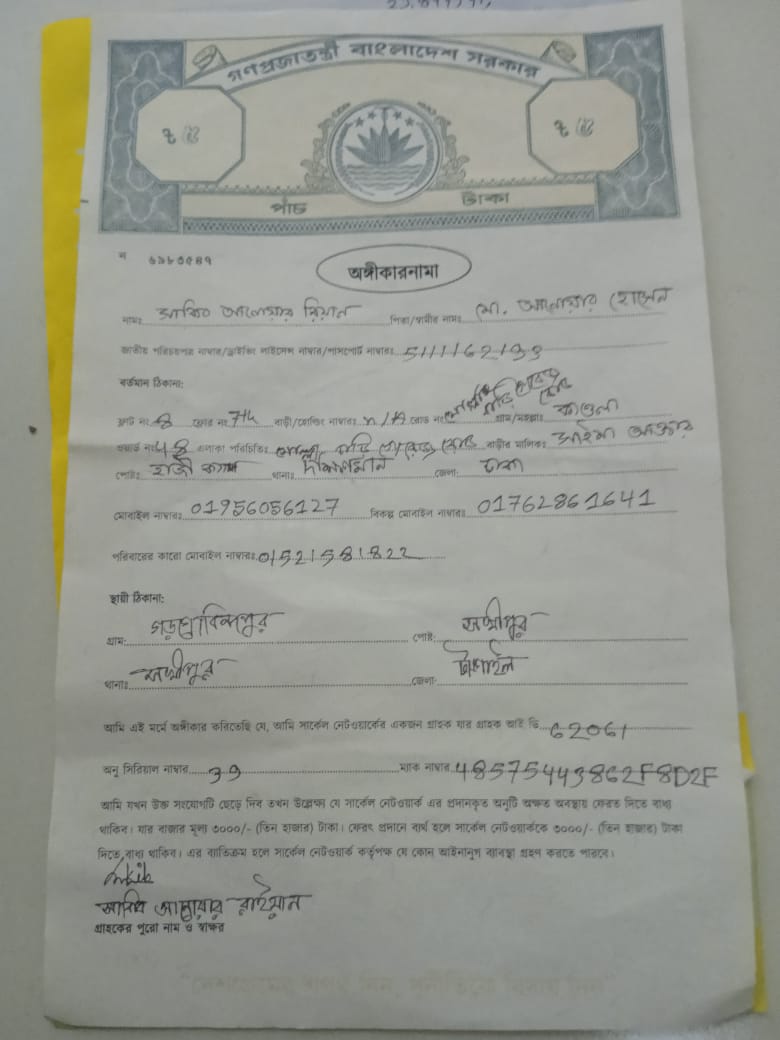 গণপ্রজাতন্ত্রী বাংলাদেশ সরকার
৳ ৫ ৳ ৫
পাঁচ টাকা
অঙ্গীকারনামা
নামঃ আনোয়ার পিতা/স্বামীর নামঃ মো. আনোয়ার হোসেন
জাতীয় পরিচয়পত্র নাম্বার/ড্রাইভিং লাইসেন্স নাম্বার/পাসপোর্ট নাম্বারঃ
বর্তমান ঠিকানা:
ফ্লাট নং 8 ফ্লোর নং 7th বাড়ী/হোল্ডিং নাম্বারঃ n/A রোড নং গ্রাম/মহল্লাঃ কাওলা
ওয়ার্ড নং 48 এলাকা পরিচিতিঃ মোল্লা বাড়ি রোড বাড়ীর মালিকঃ আক্তার
পোষ্টঃ হাজী ক্যাম্প থানাঃ দক্ষিণখান জেলা: ঢাকা
মোবাইল নাম্বারঃ 01956056127 বিকল্প মোবাইল নাম্বারঃ 01762861641
পরিবারের কারো মোবাইল নাম্বারঃ 01521581822
স্থায়ী ঠিকানা:
গ্রাম: গড়গোবিন্দপুর পোষ্ট: সখীপুর
থানাঃ সখীপুর জেলা: টাঙ্গাইল
আমি এই মর্মে অঙ্গীকার করিতেছি যে, আমি সার্কেল নেটওয়ার্কের একজন গ্রাহক যার গ্রাহক আই ডি 62061
অনু সিরিয়াল নাম্বার 39 ম্যাক নাম্বার 48575443862F8D2F
আমি যখন উক্ত সংযোগটি ছেড়ে দিব তখন উল্লেখ্য যে সার্কেল নেটওয়ার্ক এর প্রদানকৃত অনুটি অক্ষত অবস্থায় ফেরত দিতে বাধ্য
থাকিব। যার বাজার মূল্য ৩০০০/- (তিন হাজার) টাকা। ফেরৎ প্রদানে ব্যর্থ হলে সার্কেল নেটওয়ার্ককে ৩০০০/- (তিন হাজার) টাকা
দিতে বাধ্য থাকিব। এর ব্যতিক্রম হলে সার্কেল নেটওয়ার্ক কর্তৃপক্ষ যে কোন আইনানুগ ব্যবস্থা গ্রহণ করতে পারবে।
রাইয়ান
গ্রাহকের পুরো নাম ও স্বাক্ষর